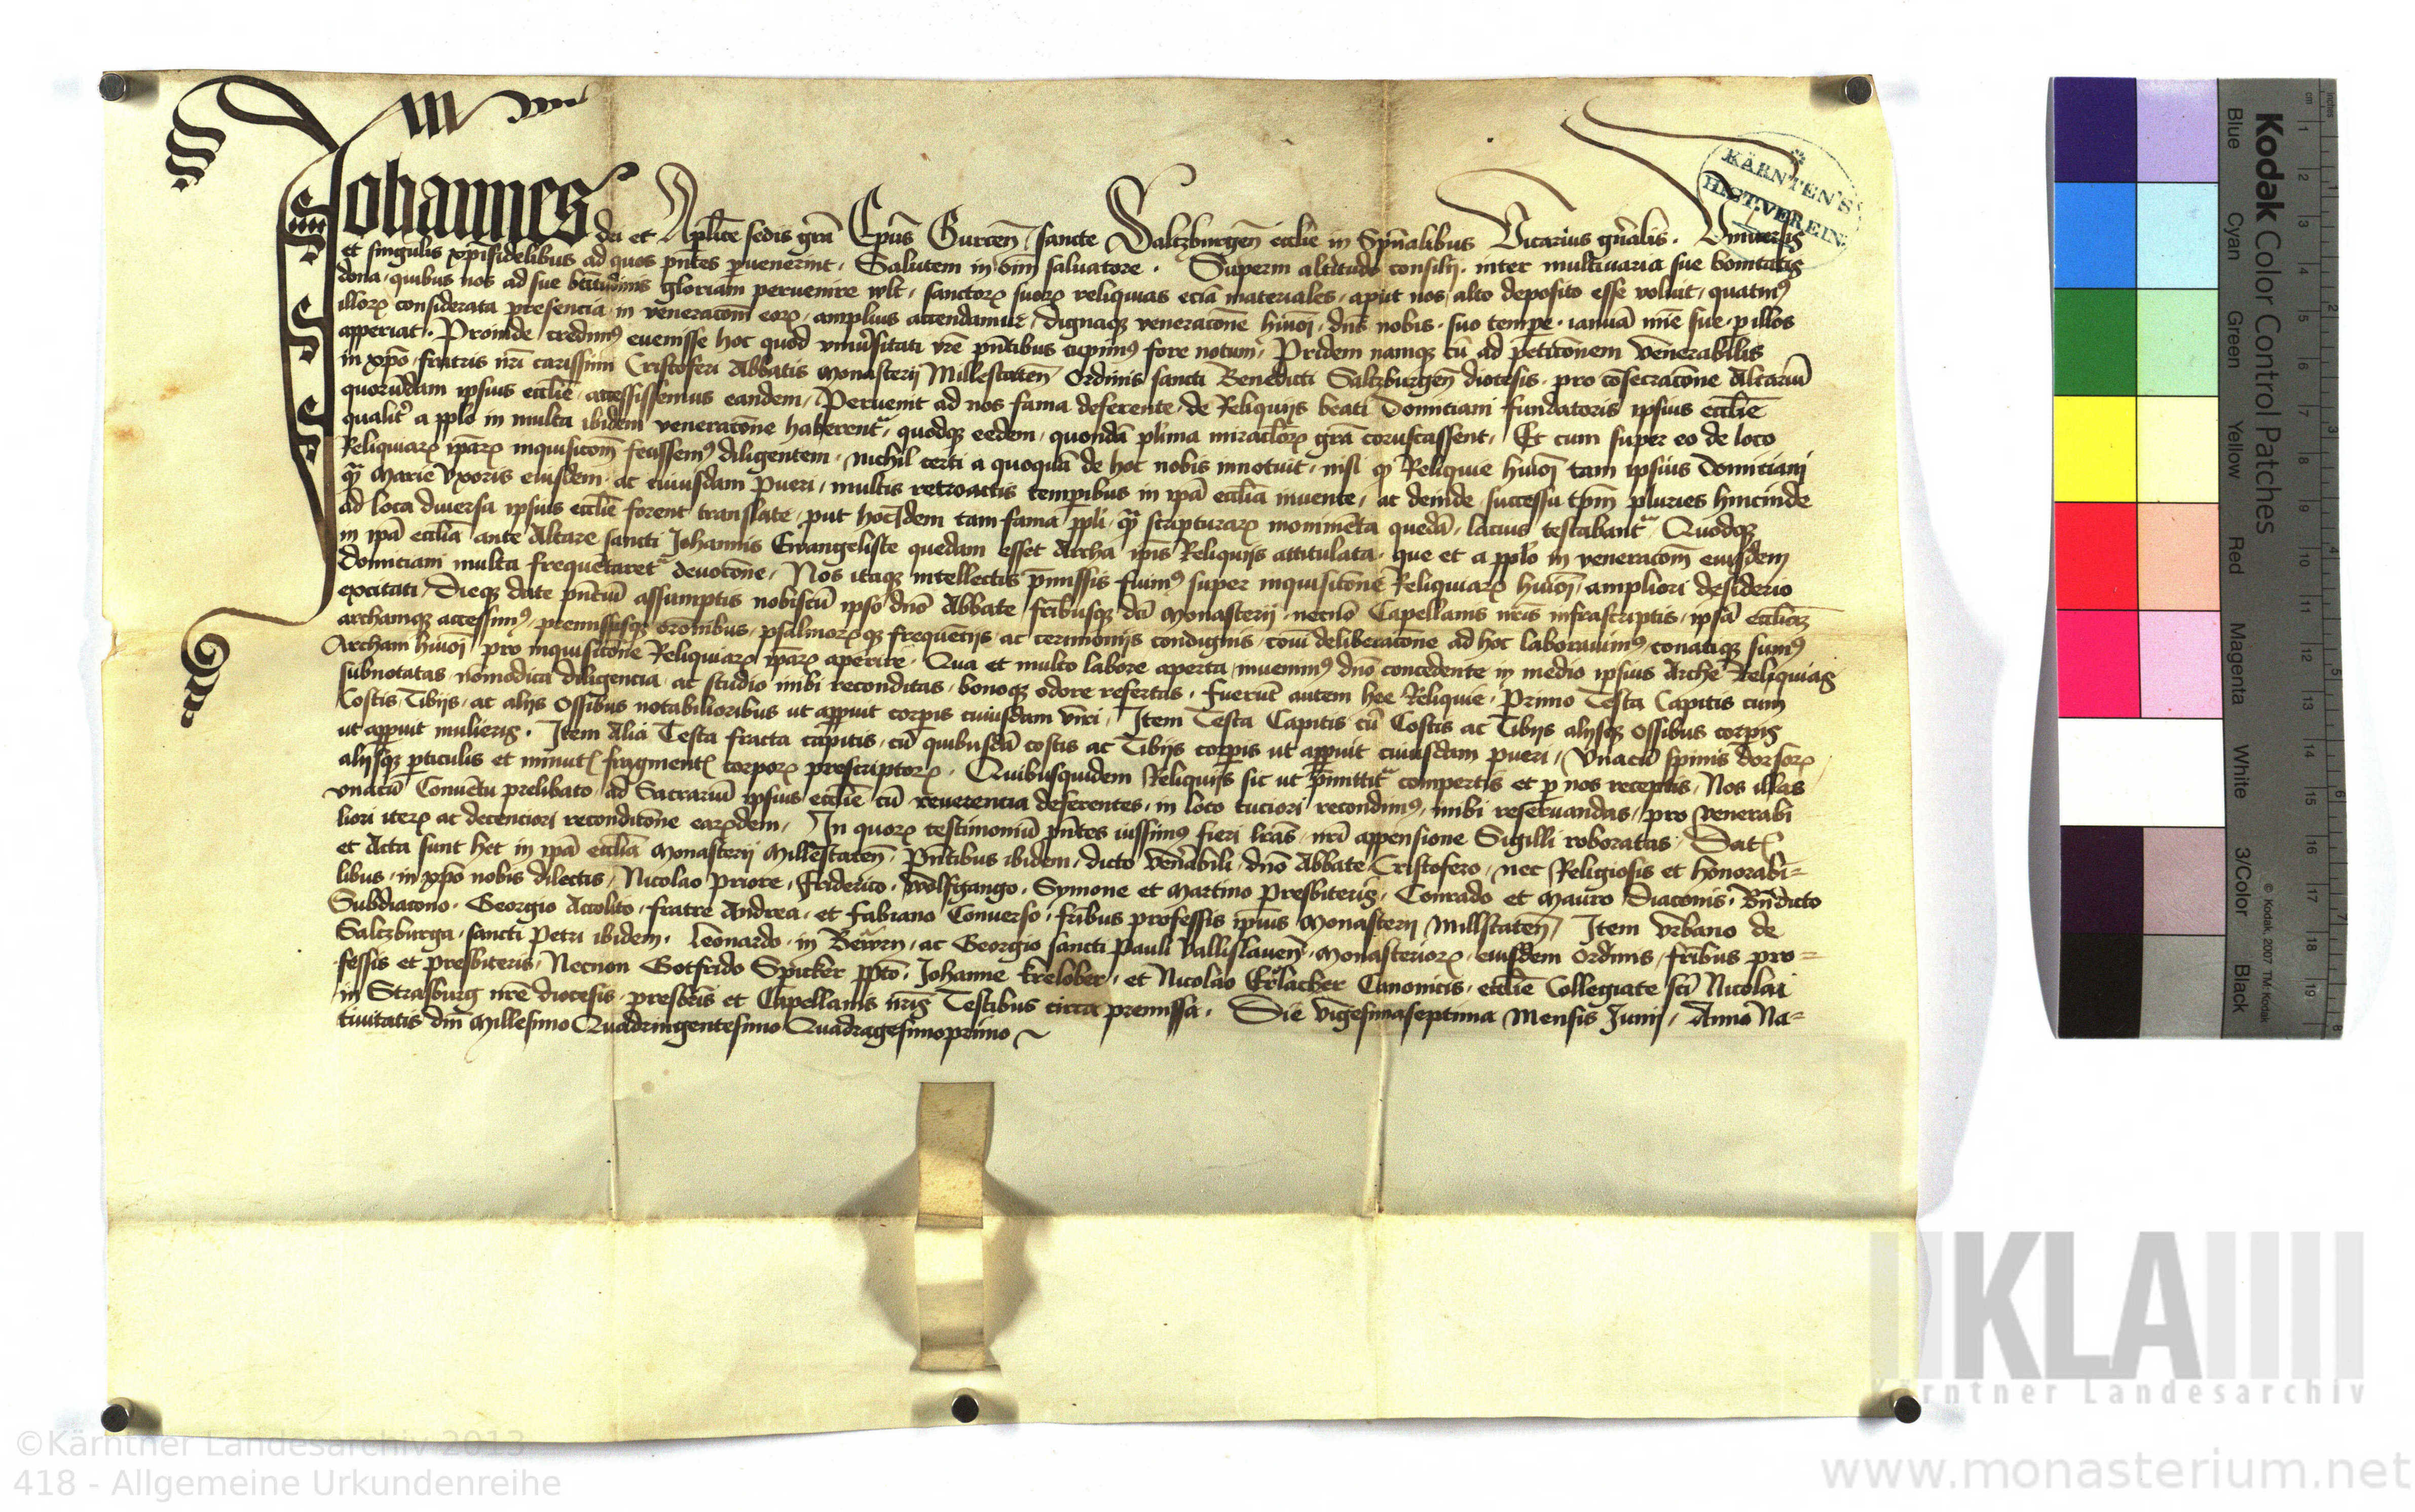 Johannes dei et Aplice sedis gra Epus Gurcen sancte Saltzburgen ecclie in Spualibus Vicarius gnalis. Vniuersis
et singulis xpifidelibus ad quos pntes puenerint, Salutem in oim saluatore. Superni altitudo consilij, inter multiuaria sue bonitatis
dona, quibus nos ad sue btitudinis gloriam peruenire wlt, sanctorꝝ suorꝝ reliquias eciā materiales, aput nos alto deposito esse voluit, quatinꝰ
illorꝝ considerata presencia in veneracom eorꝝ, amplius attendamur, dignaqꝫ veneracone huioi, dns nobis suo tempe ianuā mie sue p illos
apperiat. Proinde credimꝰ euenisse hoc quod vniūsitati vre pntibus cupimꝰ fore notum, Pridem namqꝫ cū ad peticonem venerabilis
in xpo fratris nri carissimi Cristoferi Abbatis Monasterij Millestaten Ordinis sancti Benedicti Saltzburgen diocesis pro cosecracone Altariū
quorūdam ipsius ecclie accessissemus eandem, Peruenit ad nos fama deferente de Reliquijs beati Domiciani fundatoris ipsius ecclie
qualitr a pplo in multa ibidem veneracone haberent, quodqꝫ eedem quondā plima miraclorꝝ gra coruscassent, Et cum super eo de loco
Reliquiarꝝ iparꝝ inquisicom fecissemꝰ diligentem, nichil certi a quoquā de hoc nobis innotuit, nisi qꝫ Reliquie huioi tam ipsius Domiciani
qꝫ Marie vxoris eiusdem ac cuiusdam pueri, multis retroactis tempibus in ipā ecclia inuente, ac deinde successu tpm pluries hincinde
ad loca diuersa ipsius ecclie forent translate, put hocidem tam fama ppli qꝫ scripturarꝝ monimēta quedā, lacius testabantr Quodqꝫ
in ipā ecclia ante Altare sancti Johannis Ewangeliste quedam esset Archa ipis Reliquijs attitulata, que et a pplo in veneracom eiusdem
Domiciani multa frequētaretr deuocone, Nos itaqꝫ intellectis pmissis fuimꝰ super inquisicone Reliquiarꝝ huioi ampliori desiderio
excitati, Dieqꝫ date pntiū assumptis nobiscū ipso dno Abbate fribusqꝫ dci Monasterij necno Capellanis nris infrascriptis, ipsā eccliaꝫ
archamqꝫ accessimꝰ, premissisqꝫ oronibus, psalmorꝝqꝫ frequētijs ac cerimonijs condignis, coui deliberacone ad hoc laborauimꝰ, conatiqꝫ sumꝰ
Archam huioi pro inquisicone Reliquiarꝝ iparꝝ aperire. Qua et multo labore aperta, inuenimꝰ dno concedente in medio ipsius Arche Reliquias
subnotatas nomodica diligencia ac studio inibi reconditas, bonoqꝫ odore refertas. Fuerūt autem hee Reliquie, Primo Testa Capitis cum
Costis Tibijs, ac alijs ossibus notabilioribus ut apparuit corpis cuiusdam viri, Item Testa Capitis cū Costis ac Tibijs alijsqꝫ ossibus corpis
ut apparuit mulieris. Item Alia Testa fracta capitis, cū quibusdā costis ac Tibijs corpis ut apparuit cuiusdam pueri, Vnacū spinis dorsorꝝ
alijsqꝫ pticulis et minutꝭ fragmentꝭ corporꝝ prescriptorꝝ. Quibusquidem Reliquijs sic ut pmittitr compertis et p nos receptis, Nos illas
vnacū Conuētu prelibato ad Sacrariū ipsius ecclie cū reuerencia deferentes, in loco tuciori recondimꝰ, inibi reseruandas, pro venerabi
liori iterꝝ ac decenciori recondicone earꝝdem, In quorꝝ testimoniū pntes iussimꝰ fieri lras nri appensione Sigilli roboratas. Datꝭ
et Acta sunt hec in ipā ecclia Monasterij Millestaten, Pntibus ibidem, dicto venabili dno Abbate Cristofero, nec Religiosis et honorabi=
libus, in xpo nobis dilectis, Nicolao Priore, Friderico, Wolfgango, Symone et Martino Presbiteris, Conrado et Mauro Diaconis, Bndicto
Subdiacono, Georgio Accolito, fratre Andrea, et Fabiano Conuerso, fribus professis ipius Monasterij Millstaten, Item Vrbano de
Saltzburga, sancti Petri ibidem, Leonardo in Bewrn, ac Georgio sancti Pauli vallislauen, Monasteriorꝝ, eiusdem Ordinis, fribus pro=
fessis et presbiteris, Necnon Gotfrido Spicker ppto, Johanne Krelober, et Nicolao Erlacher Canonicis, ecclie Collegiate sci Nicolai
in Strasburg nre diocesis, presbris et Capellanis nris Testibus circa premissa. Die vigesimaseptima Mensis Junij, Anno Na=
tiuitatis dni Millesimo Quadringentesimo Quadragesimoprimo
KÄRNTEN'S
HIST. VEREIN
Kodak Color Control Patches
Blue Cyan Green Yellow Red Magenta White 3/Color Black
© Kodak, 2007 TM: Kodak
cm 1 2 3 4 5 6 7 8 9 10 11 12 13 14 15 16 17 18 19
inches 1 2 3 4 5 6 7 8
KLA
Kärntner Landesarchiv
©Kärntner Landesarchiv 2013
418 - Allgemeine Urkundenreihe
www.monasterium.net